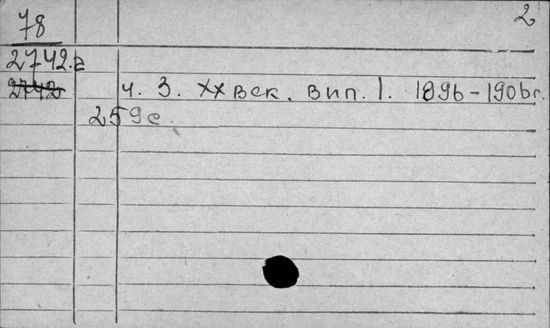 78
2
2742.а
2742
ч. 3. XX век. Вип. 1. 1896-1906г.
259с.